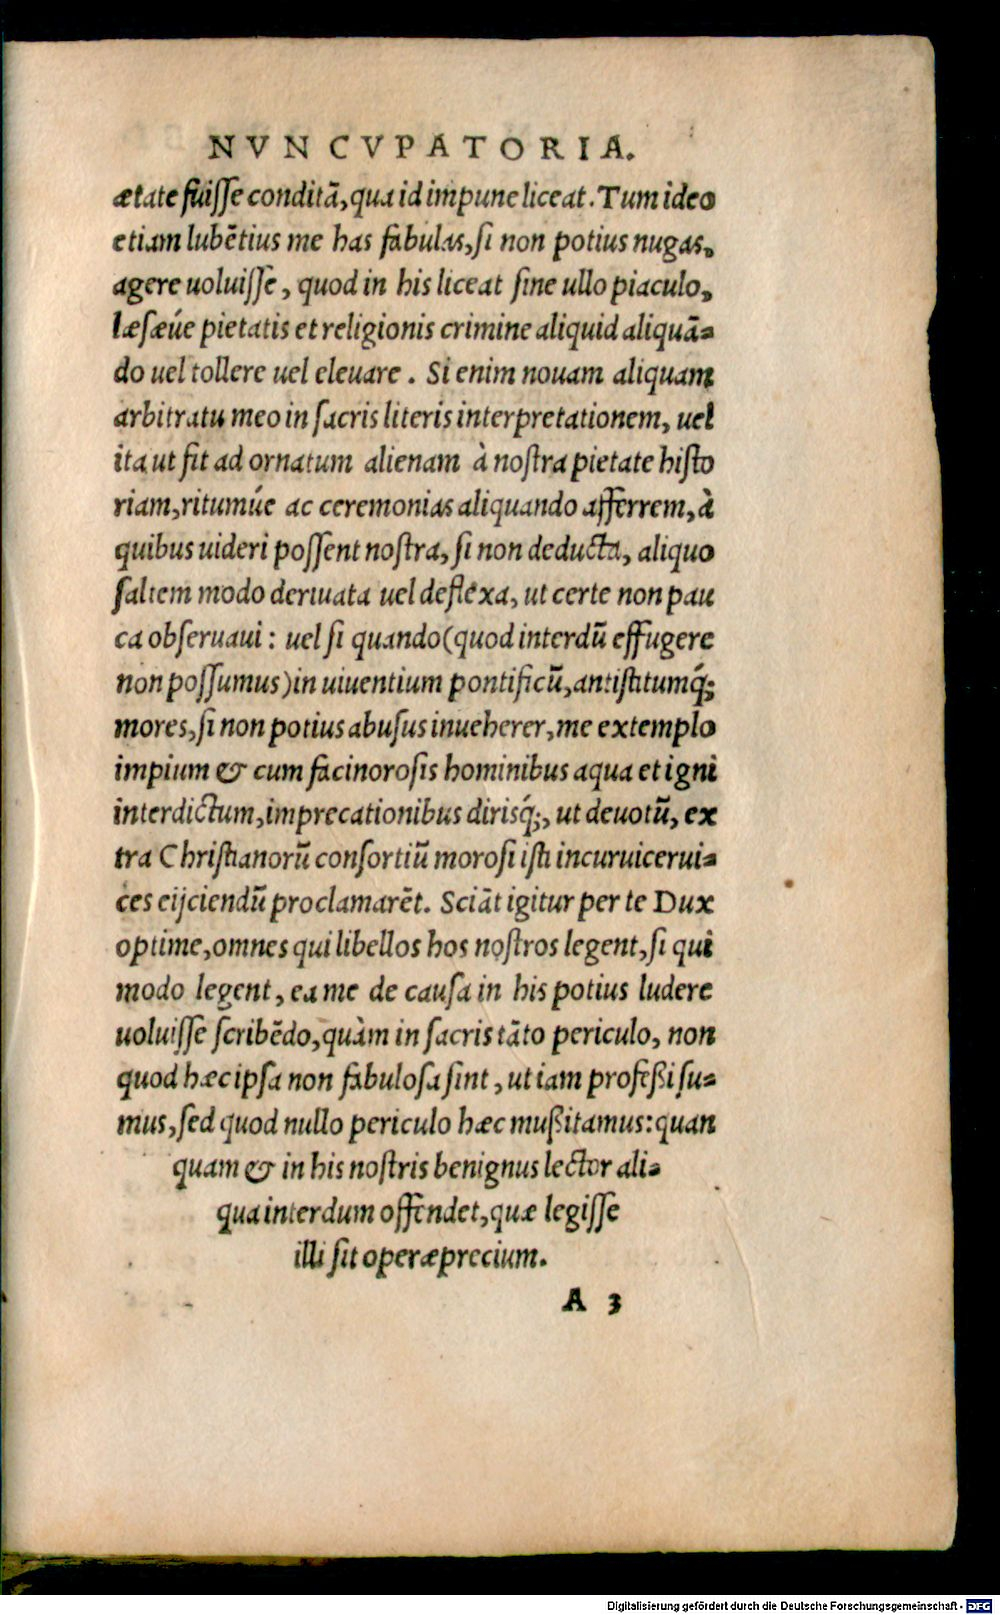 NVNCVPATORIA.
ætate fuiſſe conditā, qua id impune liceat. Tum ideo
etiam lubētius me has fabulas, ſi non potius nugas,
agere uoluiſſe, quod in his liceat ſine ullo piaculo,
læſæúe pietatis et religionis crimine aliquid aliquā-
do uel tollere uel eleuare. Si enim nouam aliquam
arbitratu meo in ſacris literis interpretationem, uel
ita ut fit ad ornatum alienam à noſtra pietate hiſto
riam, ritumúe ac ceremonias aliquando afferrem, à
quibus uideri poſſent noſtra, ſi non deducta, aliquo
ſaltem modo deriuata uel deflexa, ut certe non pau
ca obſeruaui: uel ſi quando (quod interdū effugere
non poſſumus) in uiuentium pontificū, antiſtitumq́;
mores, ſi non potius abuſus inueherer, me extemplo
impium & cum facinoroſis hominibus aqua et igni
interdictum, imprecationibus dirisq́;, ut deuotū, ex
tra Chriſtianorū conſortiū moroſi iſti incuruicerui-
ces eijciendū proclamarēt. Sciāt igitur per te Dux
optime, omnes qui libellos hos noſtros legent, ſi qui
modo legent, ea me de cauſa in his potius ludere
uoluiſſe ſcribēdo, quàm in ſacris tāto periculo, non
quod hæc ipſa non fabuloſa ſint, ut iam profeßi ſu-
mus, ſed quod nullo periculo hæc mußitamus: quan
quam & in his noſtris benignus lector ali-
qua interdum offendet, quæ legiſſe
illi ſit operæprecium.
A 3
Digitalisierung gefördert durch die Deutsche Forschungsgemeinschaft - DFG